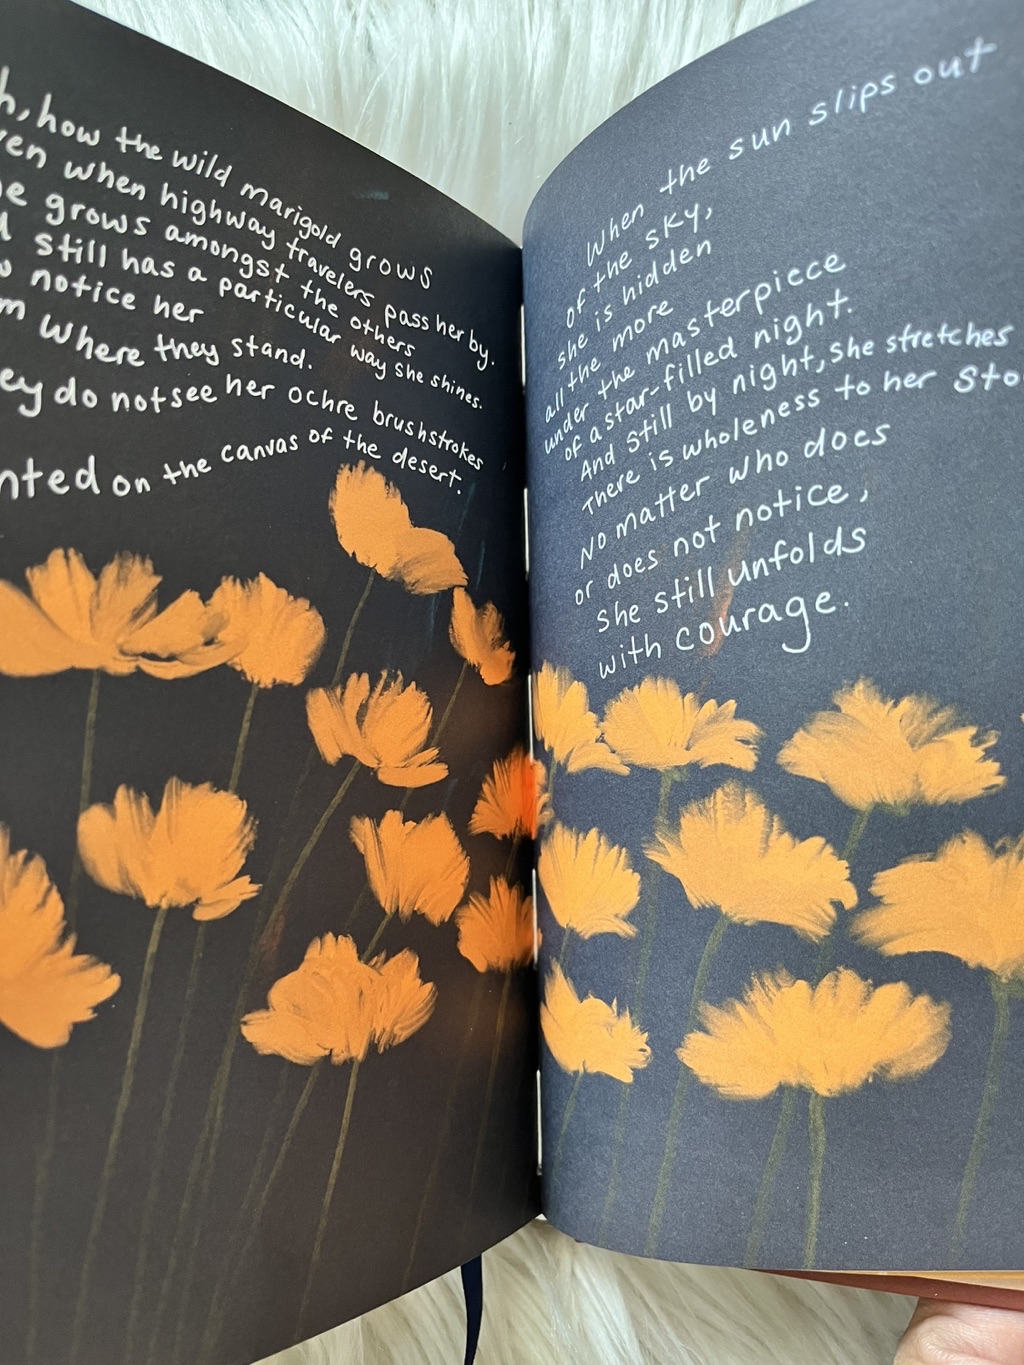 how the wild marigold grows
when highway travelers pass her by.
grows amongst the others
still has a particular way she shines.
notice her
where they stand.
do not see her ochre brushstrokes
on the canvas of the desert.
When the sun slips out
of the sky,
she is hidden
all the more
under the masterpiece
of a star-filled night.
And still by night, she stretches
There is wholeness to her
No matter who does
or does not notice,
She still unfolds
with courage.